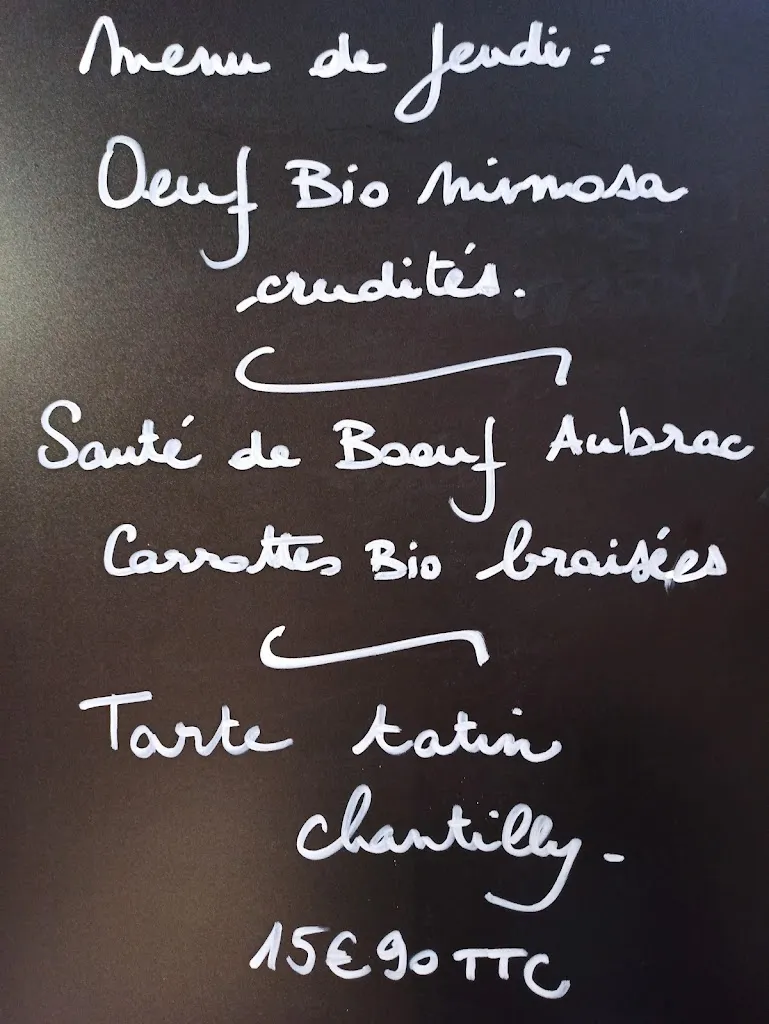 Menu de Jeudi :
Oeuf Bio mimosa
crudités.
Sauté de Boeuf Aubrac
Carrottes Bio braisées
Tarte tatin
chantilly -
15€90 TTC